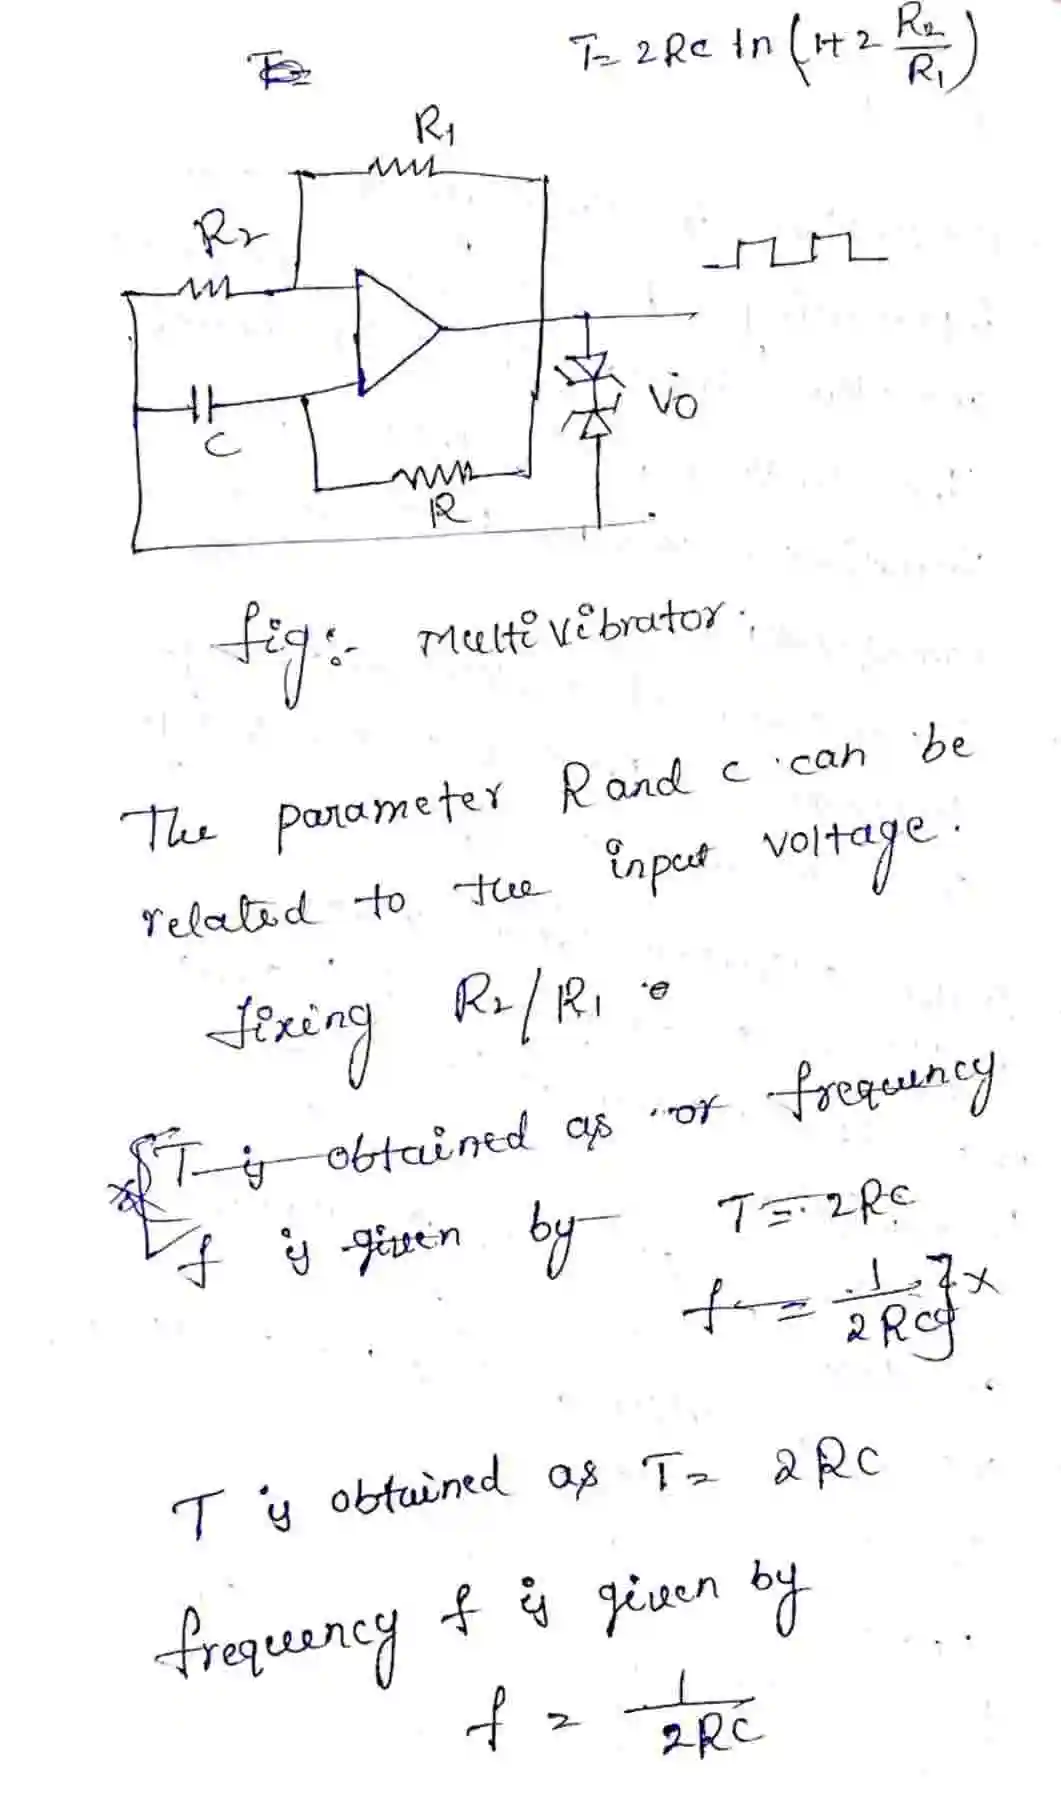 T= 2RC ln (1+2 R2/R1)
R1
R2
C
R
Vo
fig:- Multivibrator.
The parameter R and C can be
related to the input voltage.
fixing R2/R1
T is obtained as or frequency
f is given by T = 2RC
f = 1/2RC
T is obtained as T= 2RC
frequency f is given by
f = 1/2RC